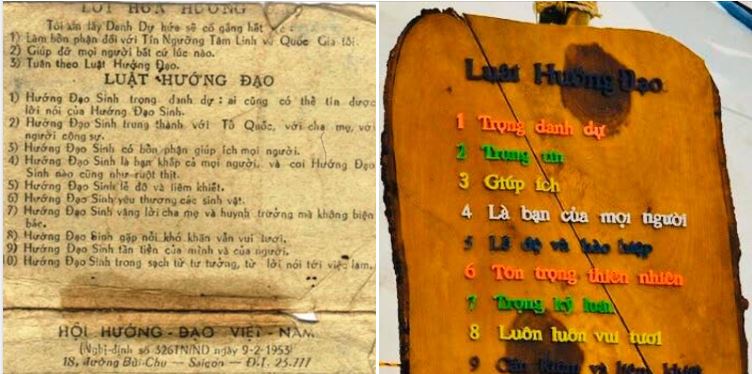 LỜI HỨA HƯỚNG
Tôi xin lấy Danh Dự hứa sẽ cố gắng hết
1) Làm bổn phận đối với Tín Ngưỡng Tâm Linh và Quốc Gia tôi.
2) Giúp đỡ mọi người bất cứ lúc nào.
3) Tuân theo Luật Hướng Đạo.
LUẬT HƯỚNG ĐẠO
1) Hướng Đạo Sinh trọng danh dự : ai cũng có thể tin được
lời nói của Hướng Đạo Sinh.
2) Hướng Đạo Sinh trung thành với Tổ Quốc, với cha mẹ, với
người cộng sự.
3) Hướng Đạo Sinh có bổn phận giúp ích mọi người.
4) Hướng Đạo Sinh là bạn khắp cả mọi người, và coi Hướng Đạo
Sinh nào cũng như ruột thịt.
5) Hướng Đạo Sinh lễ độ và liêm khiết.
6) Hướng Đạo Sinh yêu thương các sinh vật.
7) Hướng Đạo Sinh vâng lời cha mẹ và huynh trưởng mà không biện
bác.
8) Hướng Đạo Sinh gặp nỗi khó khăn vẫn vui tươi.
9) Hướng Đạo Sinh tằn tiện của mình và của người.
0) Hướng Đạo Sinh trong sạch từ tư tưởng, từ lời nói tới việc làm.
HỘI HƯỚNG - ĐẠO VIỆT - NAM
(Nghị-định số 326TN/ND ngày 9-2-1953)
18, đường Bùi-Chu — Saigon — Đ.T. 25.777
Luật Hướng Đạo
1 Trọng danh dự
2 Trung tín
3 Giúp ích
4 Là bạn của mọi người
5 Lễ độ và hào hiệp
6 Tôn trọng thiên nhiên
7 Trọng kỷ luật
8 Luôn luôn vui tươi
9 Cần kiệm và liêm khiết